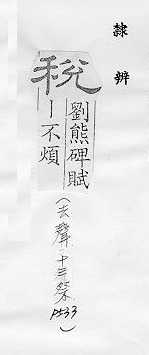 隸辨
稅
劉熊碑賦
丨不煩
(去聲 十三祭 P533)